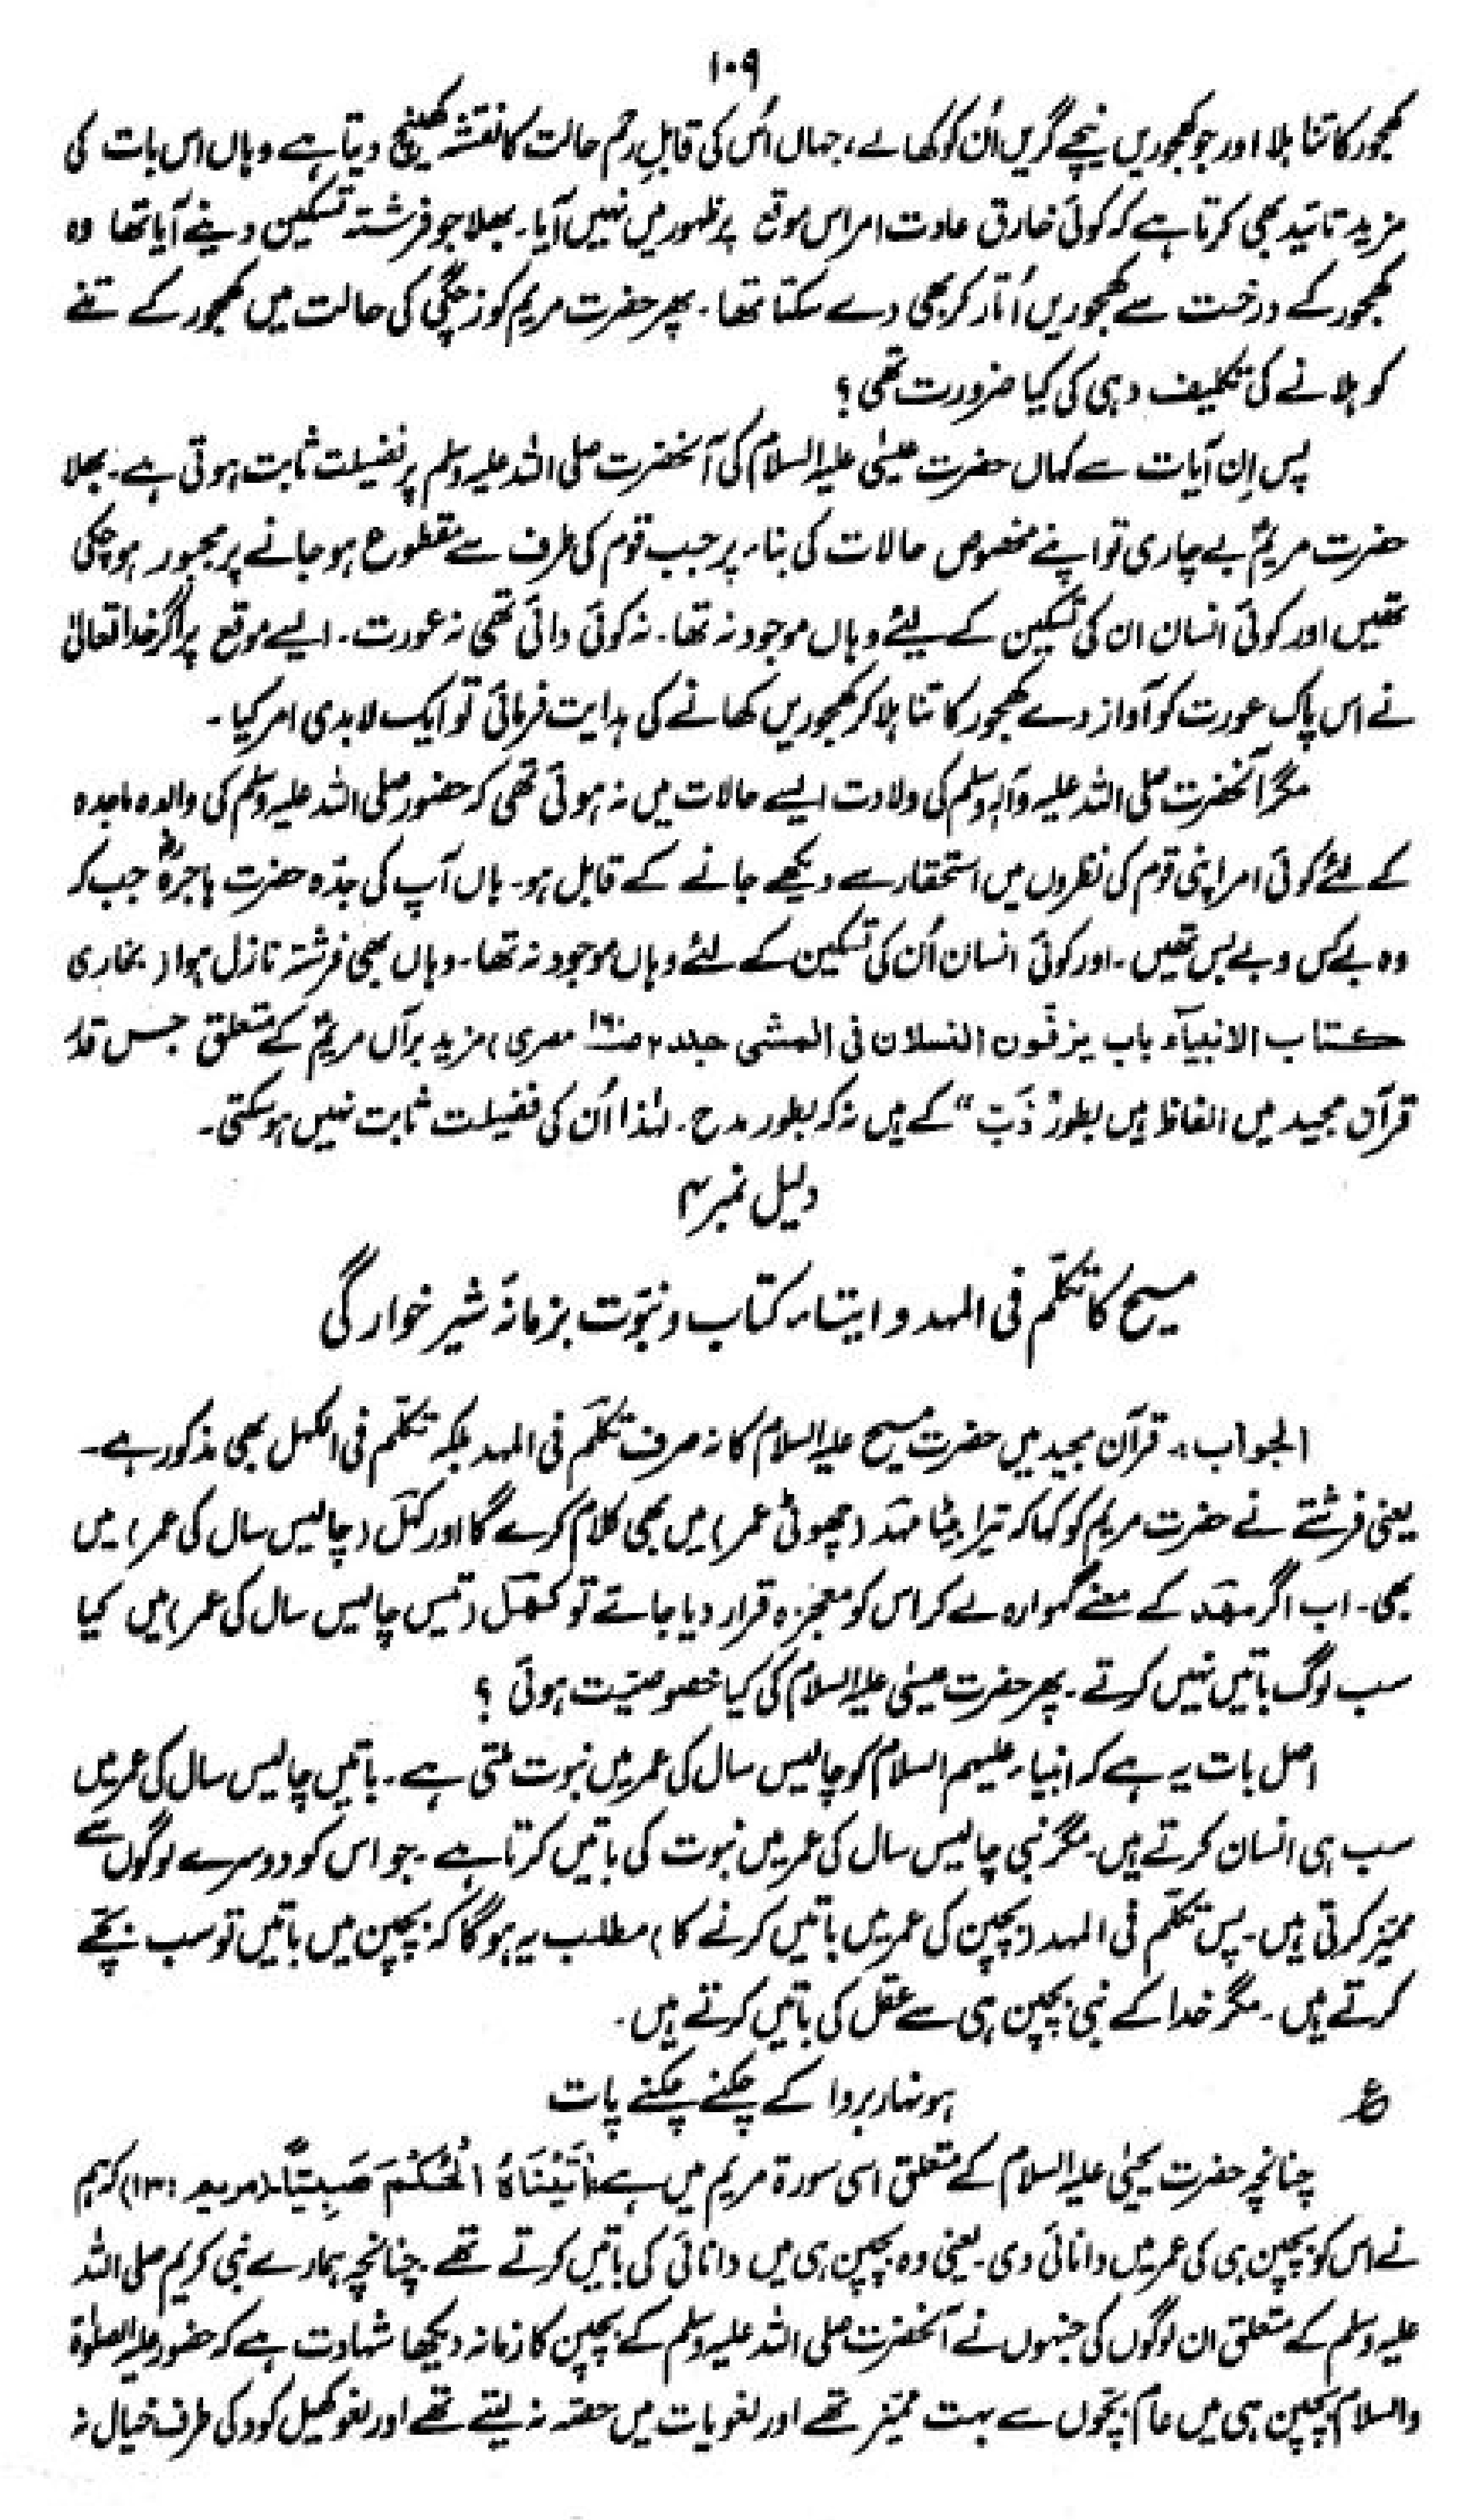 ۱۰۹
کھجور کا تنا ہلا اور جو کھجوریں نیچے گریں اُن کو کھا لے، جہاں اُس کی قابلِ رحم حالت کا نقشہ کھینچ دیتا ہے وہاں اس بات کی
مزید تائید بھی کرتا ہے کہ کوئی خارق عادت امر اس موقع پر ظہور میں نہیں آیا۔ بھلا جو فرشتہ تسکین دینے آیا تھا وہ
کھجور کے درخت سے کھجوریں اُتار کر بھی دے سکتا تھا۔ پھر حضرت مریم کو زچگی کی حالت میں کھجور کے تنے
کو ہلانے کی تکلیف دہی کی کیا ضرورت تھی؟
پس اِن آیات سے کہاں حضرت عیسٰی علیہ السلام کی آنحضرت صلی اللہ علیہ وسلم پر فضیلت ثابت ہوتی ہے۔ بھلا
حضرت مریمؑ بے چاری تو اپنے مخصوص حالات کی بناء پر جب قوم کی طرف سے مقطوع ہو جانے پر مجبور ہو چکی
تھیں اور کوئی انسان ان کی تسکین کے لیئے وہاں موجود نہ تھا۔ نہ کوئی دائی تھی نہ عورت۔ ایسے موقع پر اگر خدا تعالیٰ
نے اس پاک عورت کو آواز دے کھجور کا تنا ہلا کر کھجوریں کھانے کی ہدایت فرمائی تو ایک لابدی امر کیا۔
مگر آنحضرت صلی اللہ علیہ وآلہٖ وسلم کی ولادت ایسے حالات میں نہ ہوئی تھی کہ حضور صلی اللہ علیہ وسلم کی والدہ ماجدہ
کے لئے کوئی امر اپنی قوم کی نظروں میں استحقار سے دیکھے جانے کے قابل ہو۔ ہاں آپ کی جدّہ حضرت ہاجرہؓ جب کہ
وہ بے کس و بے بس تھیں۔ اور کوئی انسان اُن کی تسکین کے لئے وہاں موجود نہ تھا۔ وہاں بھی فرشتہ نازل ہوا (بخاری
کتاب الانبیآء باب یزفّون النسلان فی المشی جلد ۲ مصری) مزید برآں مریمؑ کے متعلق جس قدر
قرآن مجید میں الفاظ ہیں بطور "ذَبّ" کے ہیں نہ کہ بطور مدح۔ لہٰذا اُن کی فضیلت ثابت نہیں ہو سکتی۔
دلیل نمبر ۴
مسیح کا تکلّم فی المہد و ایتاء کتاب و نبوّت بزمانۂ شیر خوارگی
الجواب:۔ قرآن مجید میں حضرت مسیح علیہ السلام کا نہ صرف تکلّم فی المہد بلکہ تکلّم فی الکہل بھی مذکور ہے۔
یعنی فرشتے نے حضرت مریم کو کہا کہ تیرا بیٹا مہد (چھوٹی عمر) میں بھی کلام کرے گا اور کہل (چالیس سال کی عمر) میں
بھی۔ اب اگر مہد کے معنے گہوارہ لے کر اس کو معجزہ قرار دیا جائے تو کھل (تیس چالیس سال کی عمر) میں کیا
سب لوگ باتیں نہیں کرتے۔ پھر حضرت عیسٰی علیہ السلام کی کیا خصوصیّت ہوئی؟
اصل بات یہ ہے کہ انبیاء علیہم السلام کو چالیس سال کی عمر میں نبوت ملتی ہے۔ باتیں چالیس سال کی عمر میں
سب ہی انسان کرتے ہیں۔ مگر نبی چالیس سال کی عمر میں نبوت کی باتیں کرتا ہے۔ جو اس کو دوسرے لوگوں سے
ممیّز کرتی ہیں۔ پس تکلّم فی المہد (بچپن کی عمر میں باتیں کرنے کا) مطلب یہ ہوگا کہ بچپن میں باتیں تو سب بچّے
کرتے ہیں۔ مگر خدا کے نبی بچپن ہی سے عقل کی باتیں کرتے ہیں۔
ع ہونہار بروا کے چکنے چکنے پات
چنانچہ حضرت یحییٰ علیہ السلام کے متعلق اسی سورۃ مریم میں ہے اٰتَیْنَاہُ الْحُکْمَ صَبِیًّا۔ (مریم : ۱۳) کہ ہم
نے اس کو بچپن ہی کی عمر میں دانائی دی۔ یعنی وہ بچپن ہی میں دانائی کی باتیں کرتے تھے۔ چنانچہ ہمارے نبی کریم صلی اللہ
علیہ وسلم کے متعلق ان لوگوں کی جنہوں نے آنحضرت صلی اللہ علیہ وسلم کے بچپن کا زمانہ دیکھا شہادت ہے کہ حضور علیہ الصلوٰۃ
والسلام بچپن ہی میں عام بچّوں سے بہت ممیّز تھے اور لغویات میں حصّہ نہ لیتے تھے اور لغو کھیل کود کی طرف خیال نہ